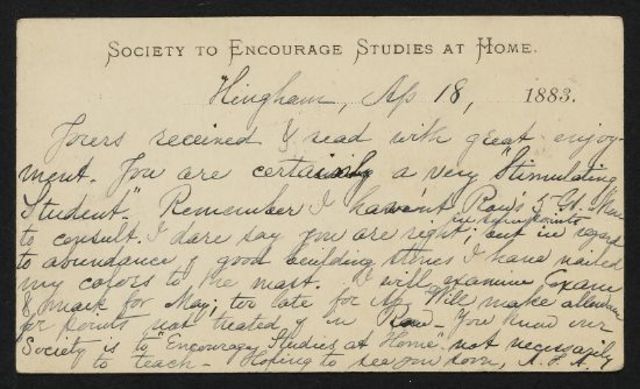 SOCIETY TO ENCOURAGE STUDIES AT HOME.
Hingham, Ap 18, 1883.
Yours received & read with great enjoy-
ment. You are certainly a very "Stimulating
Student." Remember I haven't Row's 5
to consult. I dare say you are right; but in regard
in some points
to abundance of good building stones I have nailed
my colors to the mast. I will examine Exam
& mark for May; too late for Ap. Will make allowance
for points not treated of in You know our
Society is to "Encourage Studies at Home" not necessarily
to teach - Hoping to see you soon,